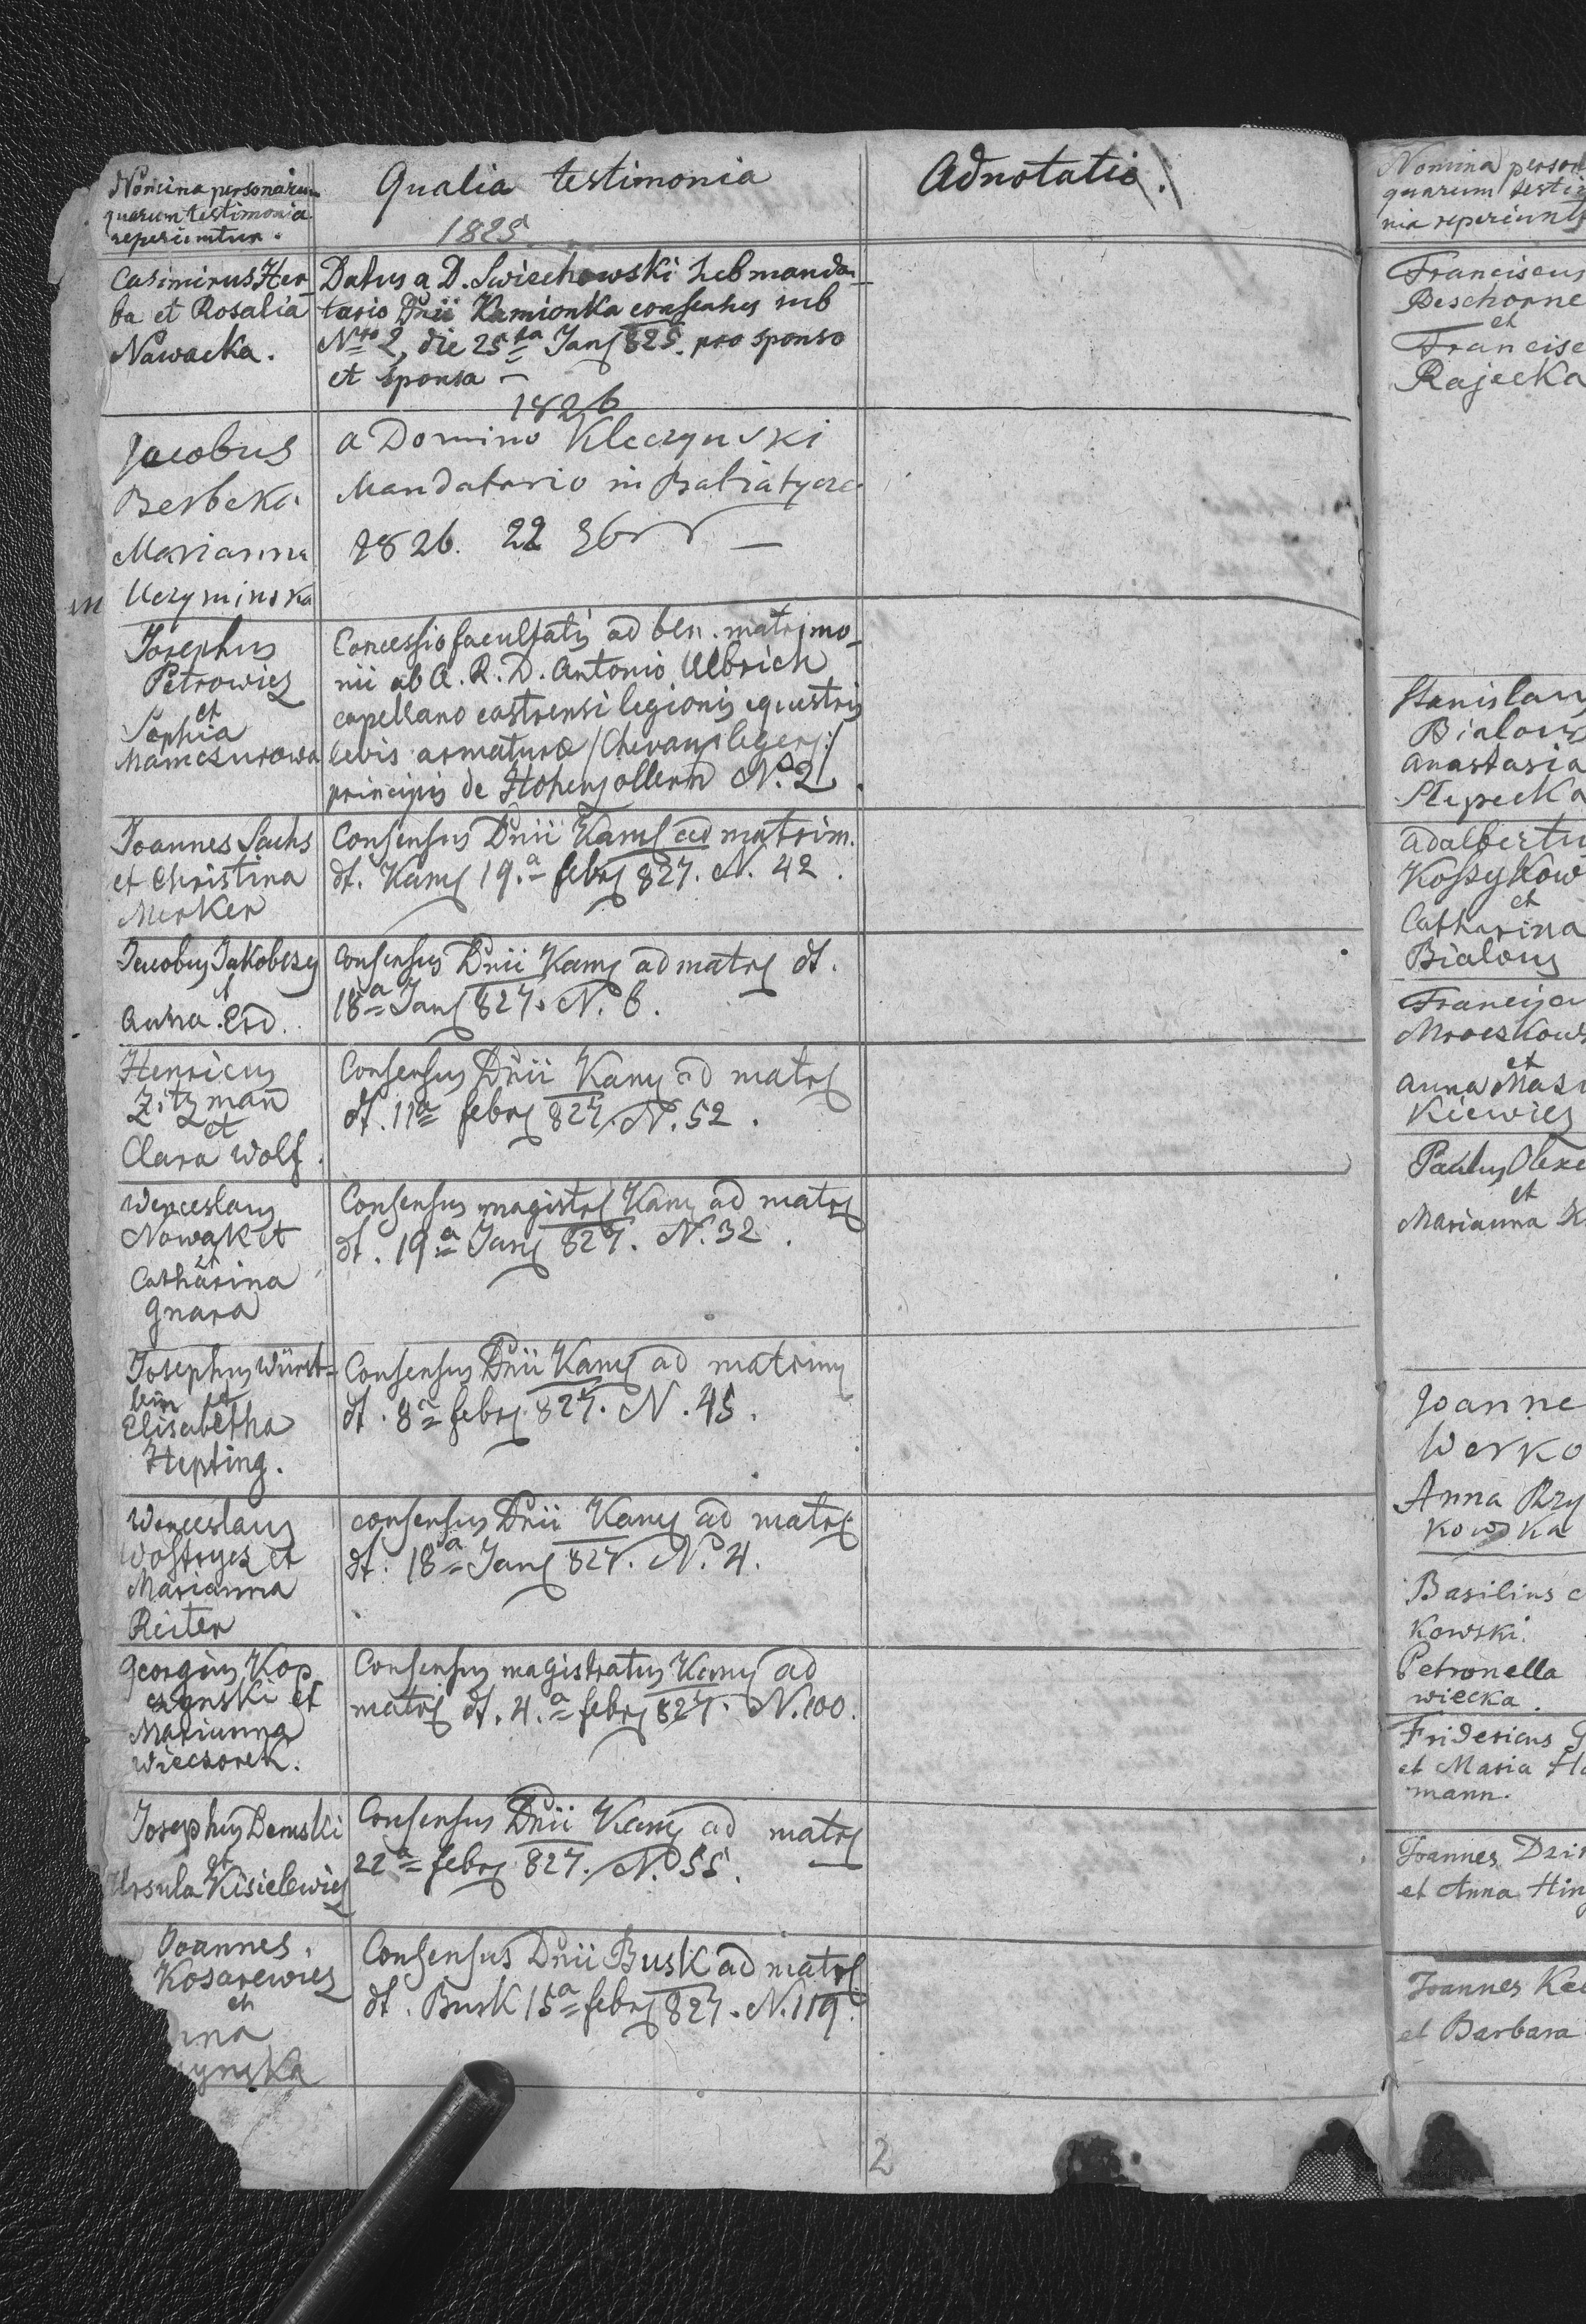 Nomina personarum
quarum testimonia
reperiuntur.
Qualia testimonia
1825
Adnotatio.
Casimirus Her-
ba et Rosalia
Nawacka.
Datus a D. Swiechowski Sub manda-
tario Dnii Kamionka consensus sub
Nro 2, die 25ta Jan 825. pro sponso
et sponsa
1826
Jacobus
Berbeka
Marianna
Uczyminska
a Domino Kleczynski
Mandatario in Batiatycze
1826. 22 9br
Josephus
Petrowicz
et
Sophia
Mamczurowa
Concessio facultatis ad ben. matrimo-
nii ab A. R. D. Antonio Ulbrich
capellano castrensi legionis equestris
levis armaturae /Chevaux legers/
principis de Hohenzollern No. 2.
Joannes Sachs
et Christina
Merker
Consensus Dnii Kam ad matrim.
dt. Kam 19.a febr 827. N. 42.
Jacobus Jakobczy
et
Anna Erd.
Consensus Dnii Kam ad matr dt.
18a Jan 827. N. 6.
Henricus
Zitzmann
et
Clara Wolf.
Consensus Dnii Kam ad matr
dt. 11a febr 827. N. 52.
Wenceslaus
Nowak et
et
Catharina
Gnara
Consensus magistr Kam ad matr
dt. 19.a Jan 827. N. 32.
Josephus Würst-
lein et
Elisabetha
Hepting.
Consensus Dnii Kam ad matrim
dt. 8a febr 827. N. 45.
Wenceslaus
Wostrycz et
Marianna
Reiter
consensus Dnii Kam ad matr
dt. 18a Jan 827. No. 4.
Georgius Kop
czynski et
Marianna
Wieczorek.
Consensus magistratus Kam ad
matr dt. 4.a febr 827. N. 100.
Josephus Demski
et
Ursula Kisielewicz
Consensus Dnii Kam ad matr
22a febr 827. No. 55.
Joannes
Kosarewicz
et
nna
ynska
Consensus Dnii Busk ad matr
dt. Busk 15a febr 827. N. 119.
2
Nomina person
quarum testi
nia reperiunt
Franciscus
Beschorne
et
Francisc
Rajecka
Stanislaus
Bialous
Anastasia
Stepecka
Adalbertu
Koszykow
et
Catharina
Bialous
Francisc
Mroczkows
et
Anna Mazu
Kiewicz
Paulus Olexe
et
Marianna K
Joanne
Werko
Anna Rzy
kowska
Basilius
kowski.
Petronella
wiecka.
Fridericus G
et Maria Ha
mann.
Joannes Dzi
et Anna Hin
Joannes Ke
et Barbara